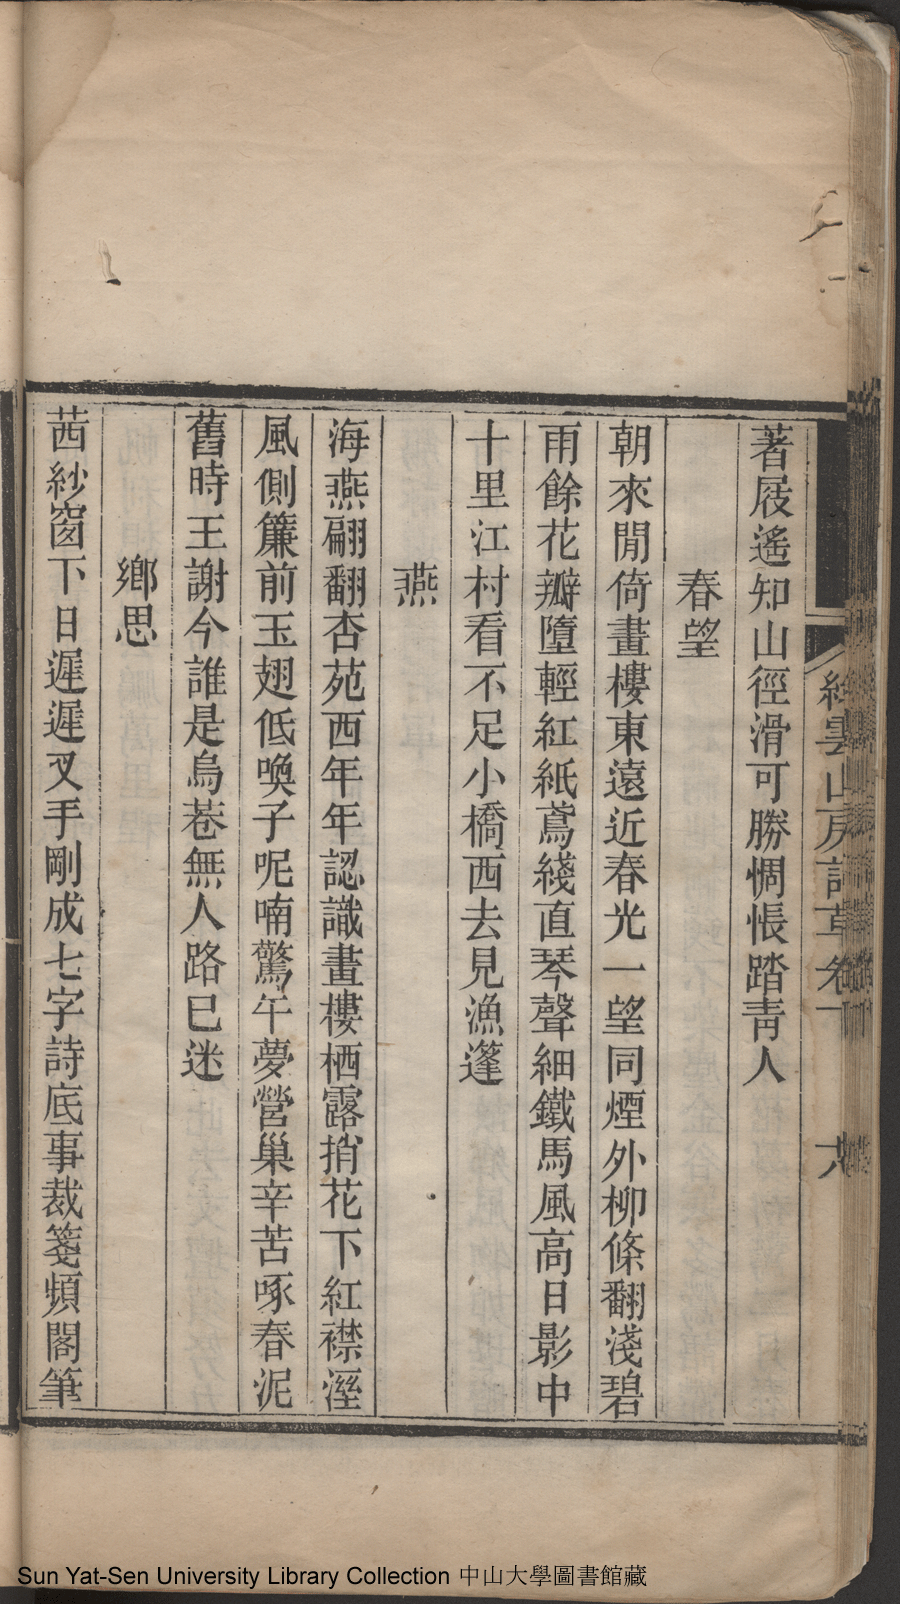 著屐遙知山徑滑可勝惆悵踏青人
春望
朝來閒倚畫樓東遠近春光一望同煙外柳條翻淺碧
雨餘花瓣墮輕紅紙鳶綫直琴聲細鐵馬風高日影中
十里江村看不足小橋西去見漁篷
燕
海燕翩翻杏苑西年年認識畫樓栖露捎花下紅襟溼
風側簾前玉翅低喚子呢喃驚午夢營巢辛苦啄春泥
舊時王謝今誰是烏巷無人路已迷
鄉思
茜紗窗下日遲遲叉手剛成七字詩底事裁箋頻閣筆
雲山房詩草卷一
Sun Yat-Sen University Library Collection 中山大學圖書館藏